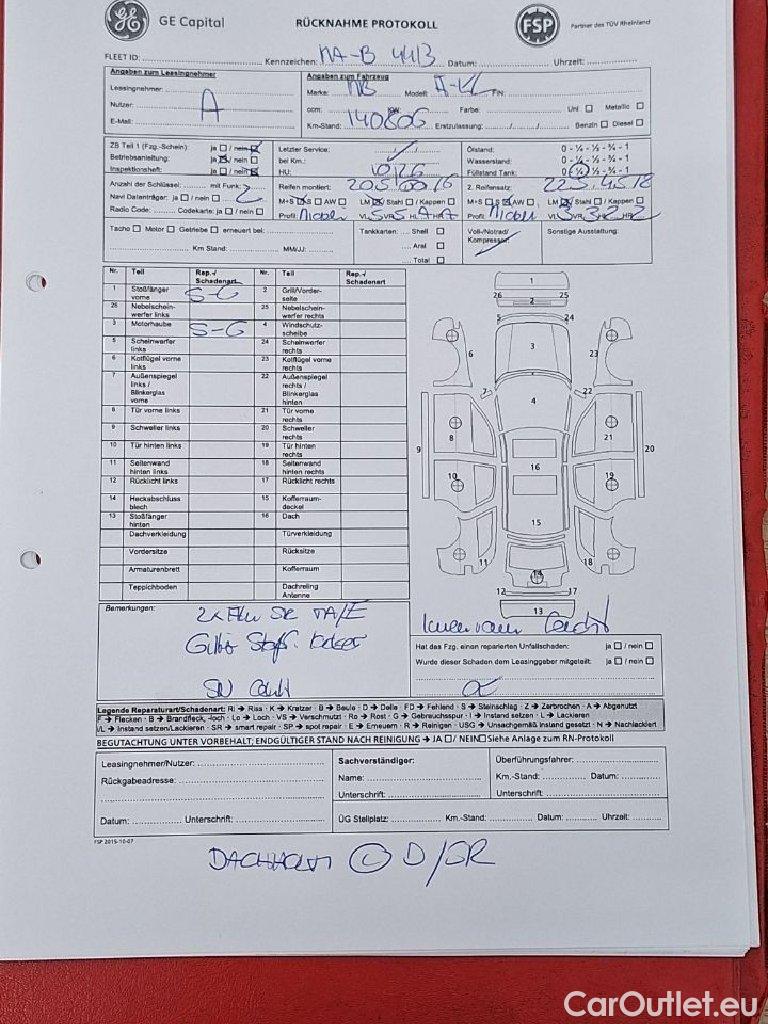 GE Capital
RÜCKNAHME PROTOKOLL
FSP
Partner des TÜV Rheinland
FLEET ID: Kennzeichen: MA-B 4413 Datum: Uhrzeit:
Angaben zum Leasingnehmer
Angaben zum Fahrzeug
Leasingnehmer:
Marke: MB Modell: A-Kl FIN:
Nutzer: A
ccm: KW: Farbe: Uni Metallic
E-Mail:
Km-Stand: 140806 Erstzulassung: Benzin Diesel
ZB Teil 1 (Fzg.-Schein): ja / nein
Letzter Service:
Ölstand: 0 - ¼ - ½ - ¾ - 1
Betriebsanleitung: ja / nein
Bei Km.:
Wasserstand: 0 - ¼ - ½ - ¾ - 1
Inspektionsheft: ja / nein
HU:
Füllstand Tank: 0 - ¼ - ½ - ¾ - 1
Anzahl der Schlüssel: mit Funk: 2
Reifen montiert: 205/60/16
2. Reifensatz: 225.45.18
Navi Datenträger: ja / nein
M+S AW LM Stahl / Kappen
M+S AW LM Stahl / Kappen
Radio Code: Codekarte: ja / nein
Profil:
Profil:
Tacho Motor Getriebe erneuert bei:
Tankkarten: Shell
Voll-/Notrad/
Kompressor:
Sonstige Ausstattung:
Aral
Km Stand: MM/JJ:
Total
Nr. Teil Rep.-/ Schadenart Nr. Teil Rep.-/ Schadenart
1 Stoßfänger vorne S-G 2 Grill/Vorderseite
26 Nebelscheinwerfer links 25 Nebelscheinwerfer rechts
3 Motorhaube S-G 4 Windschutzscheibe
5 Scheinwerfer links 24 Scheinwerfer rechts
6 Kotflügel vorne links 23 Kotflügel vorne rechts
7 Außenspiegel links / Blinkerglas vorne 22 Außenspiegel rechts / Blinkerglas hinten
8 Tür vorne links 21 Tür vorne rechts
9 Schweller links 20 Schweller rechts
10 Tür hinten links 19 Tür hinten rechts
11 Seitenwand hinten links 18 Seitenwand hinten rechts
12 Rücklicht links 17 Rücklicht rechts
14 Heckabschluss blech 15 Kofferraumdeckel
13 Stoßfänger hinten 16 Dach
Dachverkleidung Türverkleidung
Vordersitze Rücksitze
Armaturenbrett Kofferraum
Teppichboden Dachreling Antenne
1
26 25
2
5 24
6 3 23
7 22
4
8 21
9 20
16
10 19
15
11 18
14
12 17
13
Bemerkungen:
Hat das Fzg. einen reparierten Unfallschaden: ja / nein
Wurde dieser Schaden dem Leasinggeber mitgeteilt: ja / nein
Legende Reparaturart/Schadenart: Ri → Riss - K → Kratzer - B → Beule - D → Delle - FD → Fehlend - S → Steinschlag - Z → Zerbrochen - A → Abgenutzt
F → Flecken - B → Brandfleck, -loch - Lo → Loch - VS → Verschmutzt - Ro → Rost - G → Gebrauchsspur - I → Instand setzen - L → Lackieren
I/L → Instand setzen/Lackieren - SR → smart repair - SP → spot repair - E → Erneuern - R → Reinigen - USG → Unsachgemäß instand gesetzt - N → Nachlackiert
BEGUTACHTUNG UNTER VORBEHALT; ENDGÜLTIGER STAND NACH REINIGUNG → JA / NEIN Siehe Anlage zum RN-Protokoll
Leasingnehmer/Nutzer:
Sachverständiger:
Überführungsfahrer:
Rückgabeadresse:
Name:
Km.-Stand: Datum:
Unterschrift:
Unterschrift:
Datum: Unterschrift:
ÜG Stellplatz: Km.-Stand: Datum: Uhrzeit:
FSP 2015-10-07
CarOutlet.eu